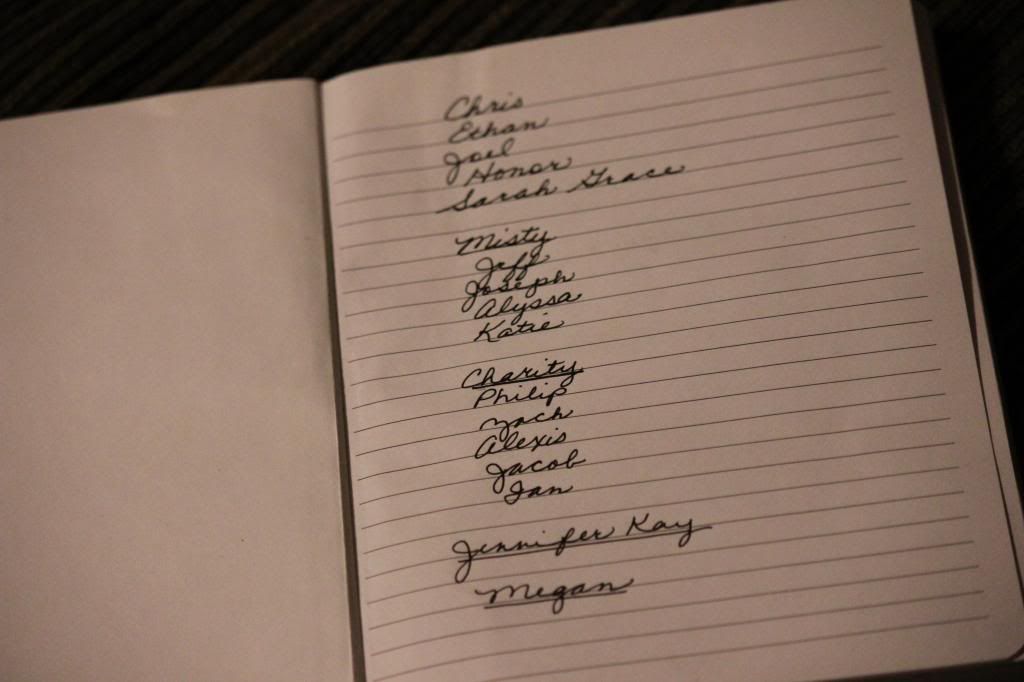 Chris
Ethan
Joel
Honor
Sarah Grace
Misty
Jeff
Joseph
Alyssa
Katie
Charity
Philip
Zach
Alexis
Jacob
Ian
Jennifer Kay
Megan